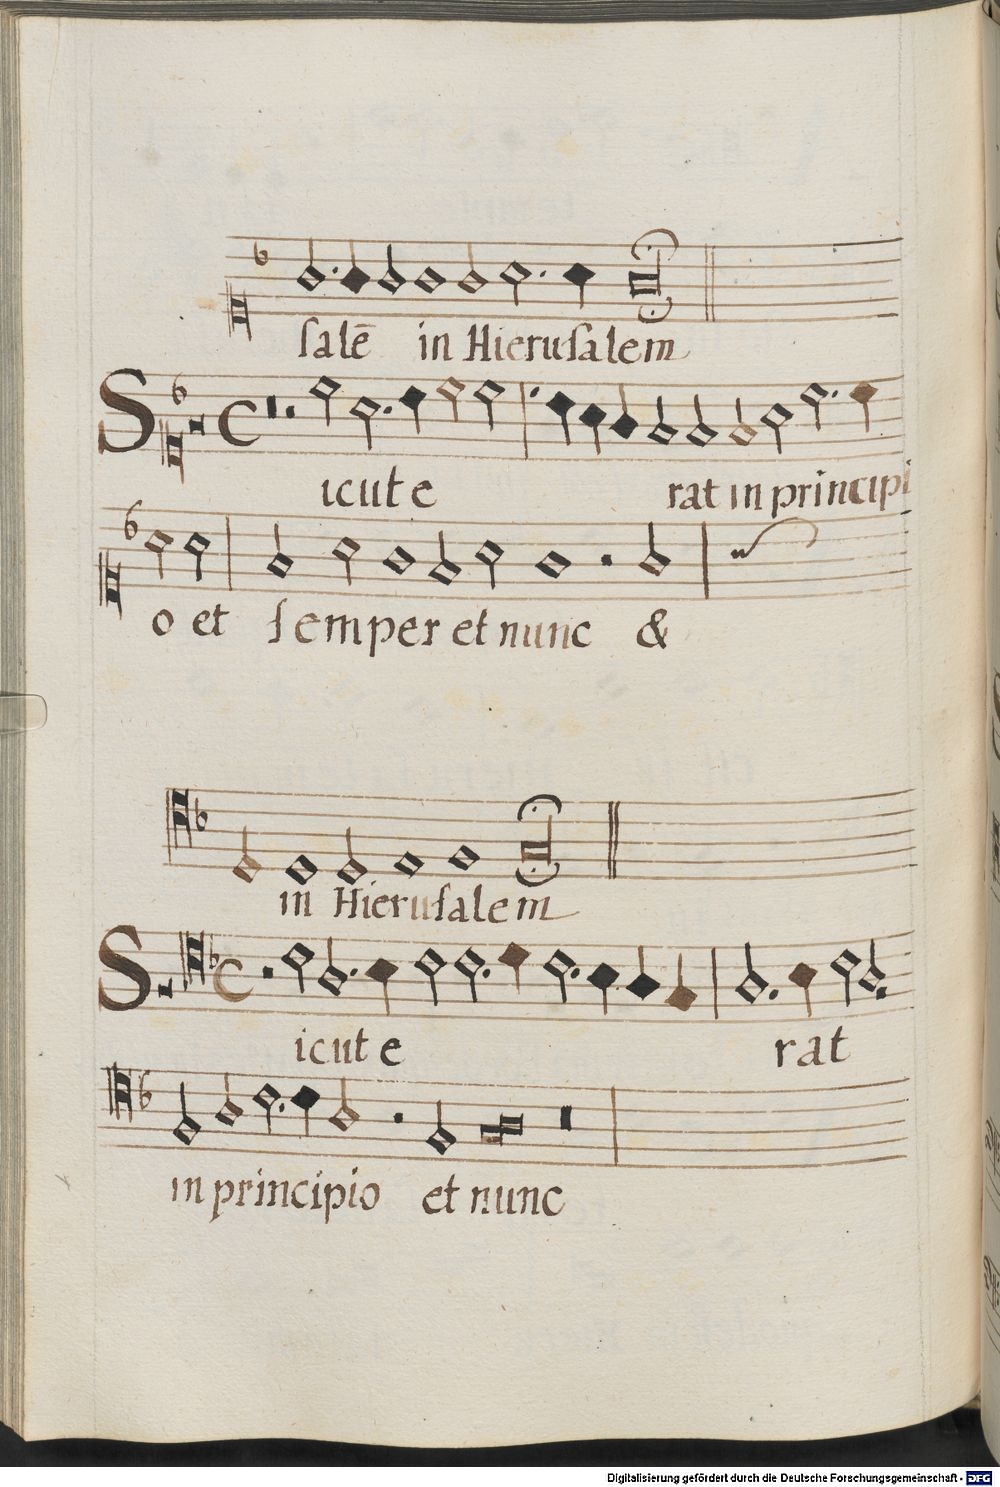 salē in Hierusalem
Sicut e rat in principi
o et semper et nunc &
in Hierusalem
Sicut e rat
in principio et nunc
Digitalisierung gefördert durch die Deutsche Forschungsgemeinschaft - DFG